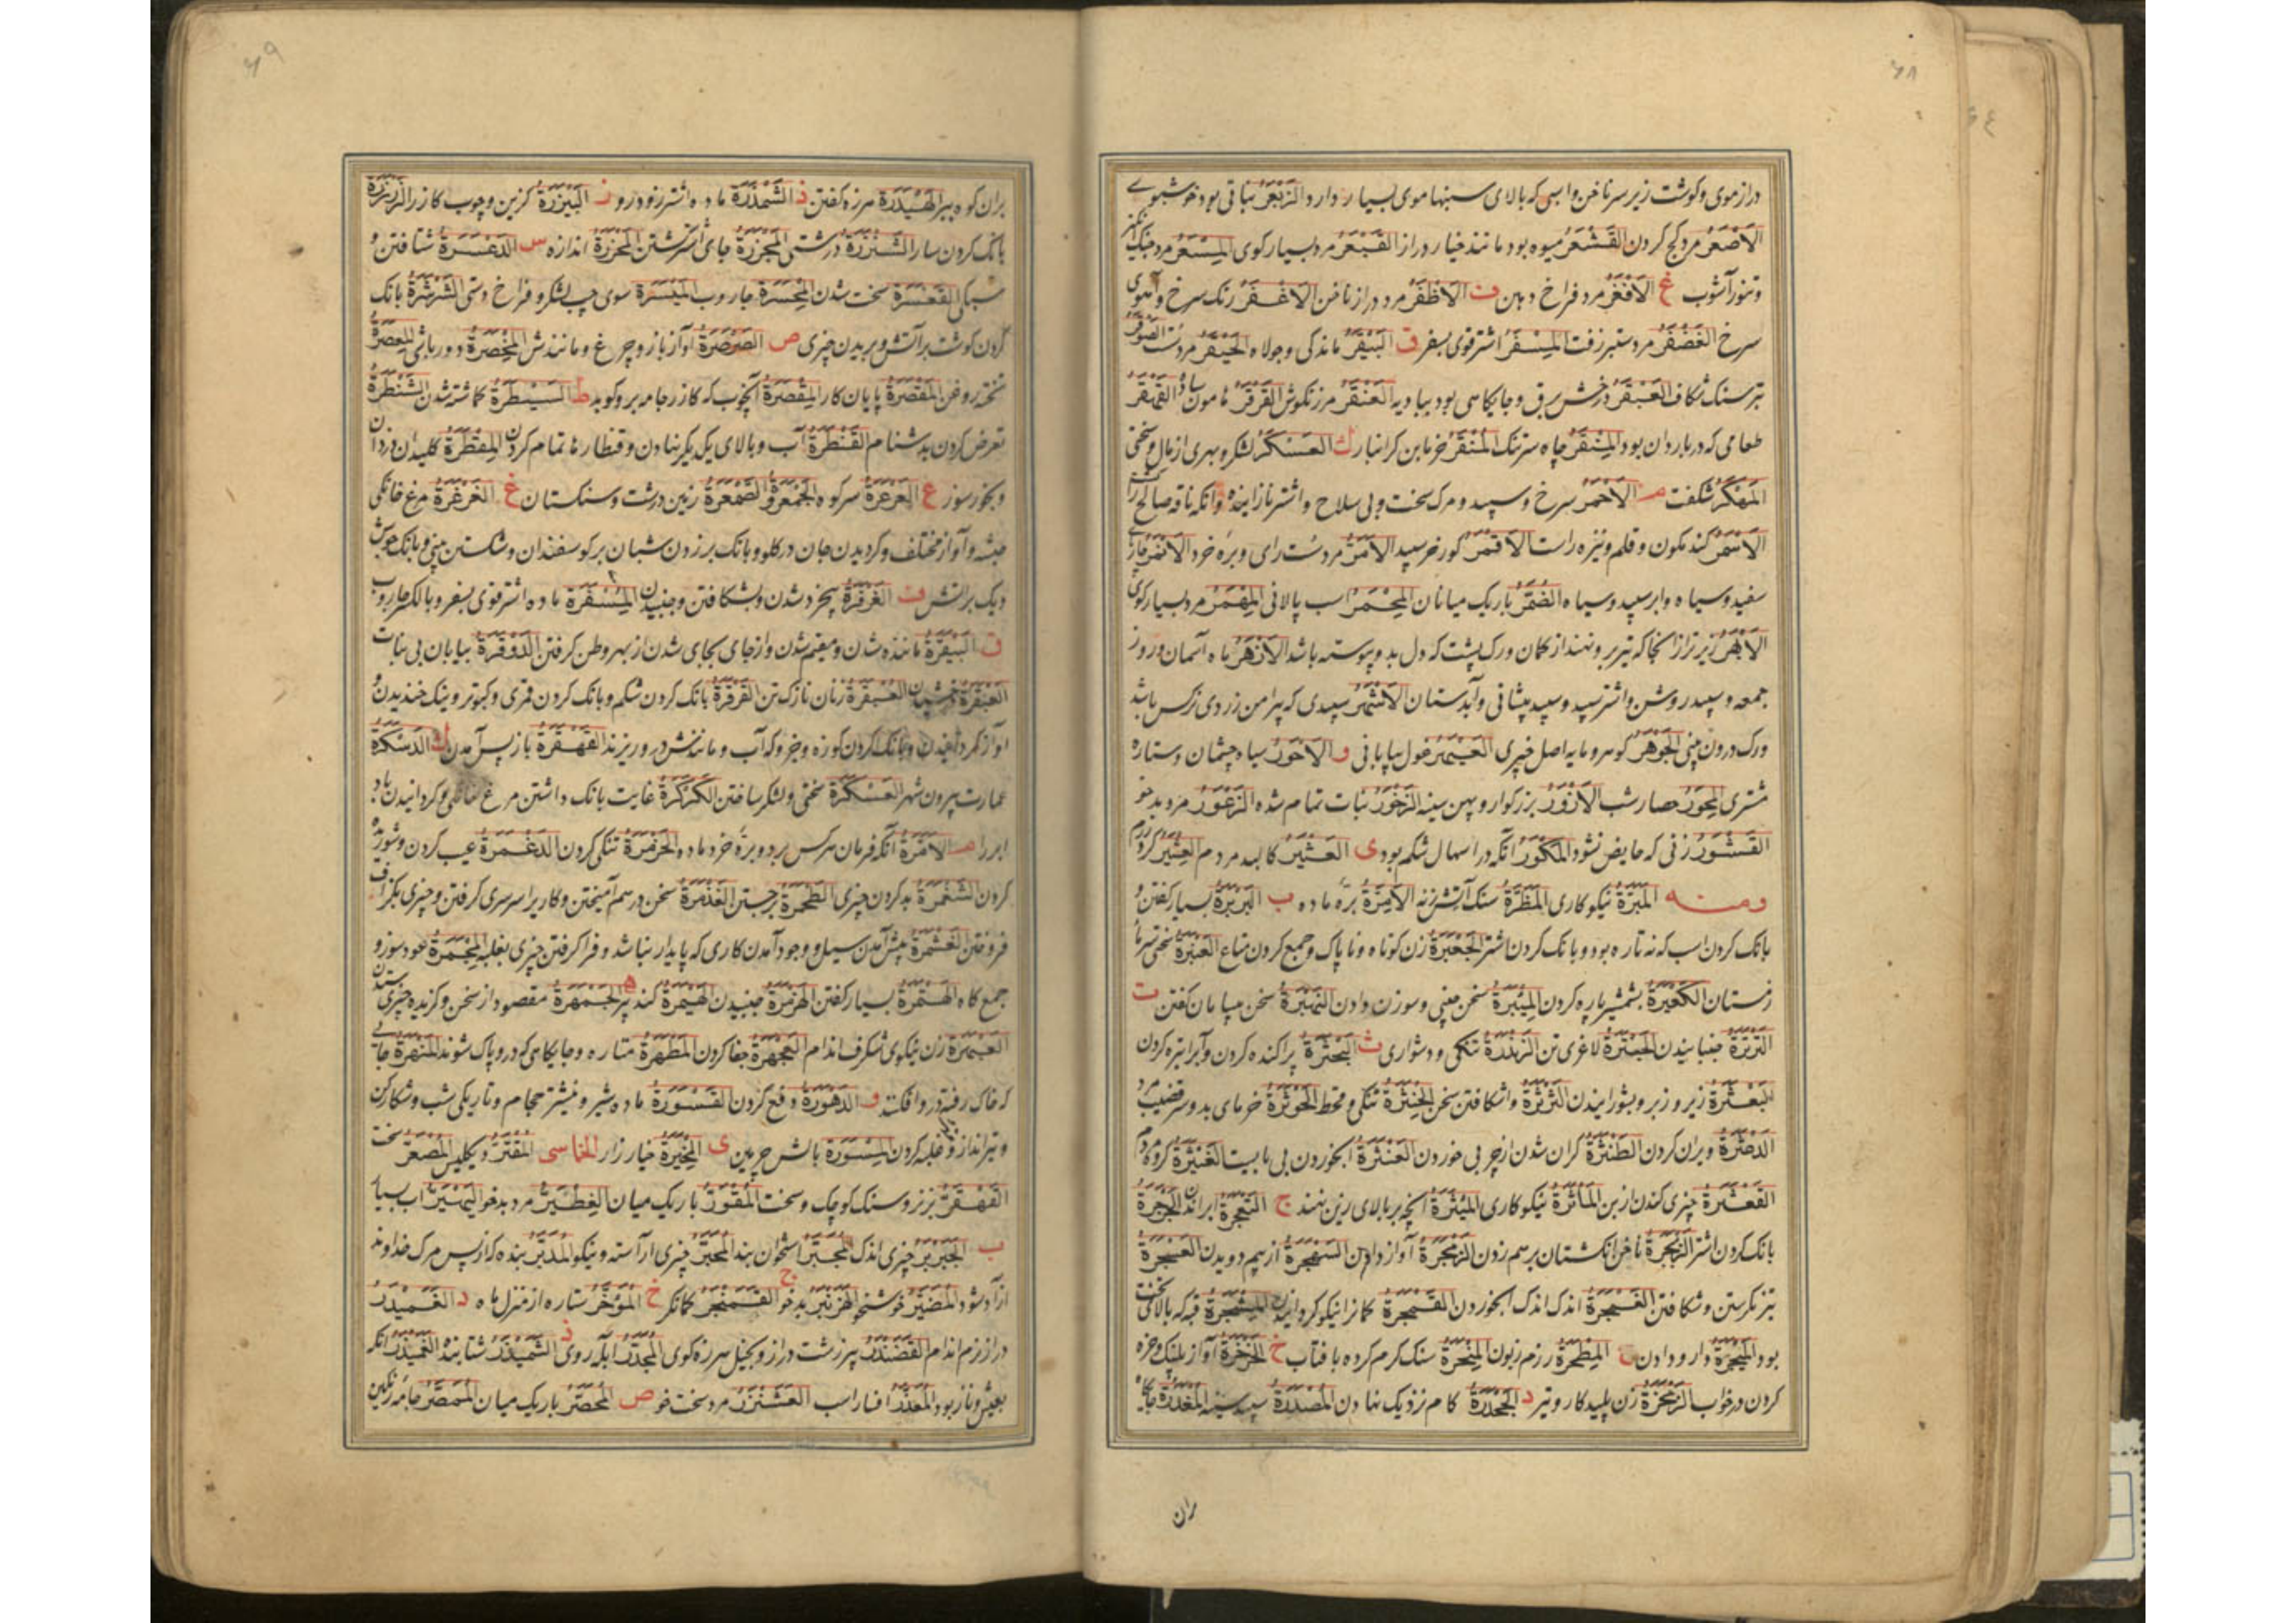 ۶۸
دراز موی و کوشت زیر سر ناخن و اسبی که بالای سنبها موی بسیار دارد الزبعر نباتی بود خوشبوے
الاصعر مرد کج کردن القشعر میوه بود مانند خیار دراز القبعر مرد بسیار کوی المسعر مرد جنک
و تنور آشوب غ الافغر مرد فراخ دهن ف الاظفر مرد دراز ناخن الاغفر رنک سرخ و آهوی
سرخ الغضفر مرد ستبر زفت المسفر اشتر قوی بسفر ق البیقر ماندکی و جولاه الحیقر مرد سست الصوقر
تبر سنک شکاف العبقر درخش برق و جایکاهی بود ببادیه العنقر مرزنکوش القرقر هامون ساده القهقر
طعامی که در باردان بود المنقر چاه سرتنک المنقر خرمابن کرانبار ك العسکر لشکر و بهری از مال و سختی
المهکر شکفت م الاحمر سرخ و سپید و مرک سخت و بی سلاح و اشتر نازاینده وانکه ناقه صالح را کشت
الاسمر کندمکون و قلم و نیزه راست الاقمر کورخر سپید الامر مرد سست رای و بره خرد الانمر
سفید و سیاه و ابر سپید و سیاه الضمر باریک میانان المحمر اسب پالانی المهمر مرد بسیار کوی
الابهر زیرتر از انجا که تیر برو نهند از کمان ورک پشت که دل بدو پیوسته باشد الازهر ماه آسمان و روز
جمعه و سپید روشن و اشتر سپید و سپید پیشانی و آبدستان الاشهر سپیدی که پیرامن زردی نرکس باشد
ورک درون بینی الجوهر کوهر و مایه اصل چیزی العیهر غول بیابانی و الاحور سیاه چشمان و ستاره
مشتری المحور حصار شب الازور بزرکوار و پهن سینه الزخور نبات تمام شده الزعور مرد بدخو
القشور زنی که حایض نشود المکور انکه در اسهال شکم بود ی العثیر کالبد مردم العثیر کرد
ومنه المبرة نیکوکاری المظرة سنک آتش زنه الامرة بره ماده ب البربرة بسیار کفتن و
بانک کردن اسب که نه تازه بود و بانک کردن اشتر الجعبرة زن کوتاه و ناپاک و جمع کردن متاع العنبرة سختی سرما
زمستان الکعبرة بشمشیر پاره کردن المئبرة سخن چینی و سوزن دادن النهبرة سخن بپایان کفتن ت
الترترة جنبانیدن الحبترة لاغری تن النهترة تنکی و دشواری ث البحثرة پراکنده کردن و آبرا تیره کردن
البعثرة زیر و زبر و بشورانیدن الثرثرة و اشکافتن سخن الخنثرة تنکی و قحط الحوثرة خرمای بد و سر قضیب مرد
الدعثرة ویران کردن الطنثرة کران شدن از چربی خوردن العنثرة آبخوردن بی بایست الغنثرة کروه مردم
القعثرة چیزی کندن از بن الماثرة نیکوکاری المیثرة آنچه بر بالای زین نهند ج الثجرة ابر اندن الجرجرة
بانک کردن اشتر الزنجرة ناخن انکشتان برهم زدن الزمجرة آواز دادن السهجرة از بیم دویدن العنجرة
تیز نکرستن و شکافتن الغمجرة اندک اندک آبخوردن القمجرة کمانرا نیکو کردانیدن المشجرة
بود المیجرة دارو دادن ح المطحرة رزم زبون المنحرة سنک کرم کرده بافتاب خ الخرخرة آواز پلنک و خره
کردن در خواب الزمخرة زن پلید کار و تیر د الجحدرة کام نزدیک نهادن المصدرة سپید سینه المغدرة
ران
۶۹
بران کوه بر الهیذرة هرزه کفتن ذ الشمذرة ماده اشتر زودرو ز البیزرة کزین و چوب کازر الزرزرة
بانک کردن سار الشنزرة درشتی المجزرة جای اشتر کشتن المحزرة اندازه س الدغسرة شتافتن و
سبکی القعسرة سخت شدن المحسرة جاروب المیسرة سوی چپ لشکر و فراخ دستی الشرشرة بانک
کردن کوشت بر آتش و بریدن چیزی ص الصرصرة آواز باز و چرغ و مانندش المخصرة دورباش المعصرة
تخته روغن المقصرة پایان کار المقصرة آنچوب که کازر جامه برو کوبد ط السیطرة کماشته شدن الشنطرة
تعرض کردن بدشنام القنطرة آب و بالای یکدیکر نهادن و قنطارها تمام کردن المقطرة کلیدان دزدان
و بخور سوز ع العرعرة سر کوه الجمعرة و الصمعرة زمین درشت و سنکستان غ الغرغرة مرغ خانکی
حبشه و آواز مختلف و کردیدن جان در کلو و بانک بر زدن شبان بر کوسفندان و شکستن بینی و بانک جوش
دیک بر اتش ف الغرفرة بیخرد شدن و بشکافتن و جنبیدن المسفرة ماده اشتر قوی بسفر و بالکسر جاروب
ق البیقرة مانده شدن و مقیم شدن و از جای بجای شدن از بهر وطن کرفتن الدوقرة بیابان بی نبات
العبقرة العبقرة زنان نازک تن القرقرة بانک کردن شکم و بانک کردن قمری و کبوتر و نیک خندیدن و
آواز کرد و بانک کردن کوزه و خروکه آب و مانندش درو ریزند القهقرة باز پس آمدن ك الدسکرة
عمارت بیرون شهر العسکرة سختی و لشکر ساختن الکرکرة غایت بانک داشتن مرغ خانکی و کردانیدن باد
ابر را م الامرة آنکه فرمان هرکس برد و بره خرد ماده الحزمرة تنکی کردن الدغمرة عیب کردن و شوریده
کردن الشغمرة بد کردن چیزی الطحمرة برجستن الغذمرة سخن درهم آمیختن و کار را سرسری کرفتن و چیزی بکزاف
فروختن الغشمرة پیش آمدن سیل و وجود آمدن کاری که پایدار نباشد و فرا کرفتن چیزی بغلبه المجمرة عود سوز و
جمع کاه الهتمرة بسیار کفتن الهزمرة جنبیدن الهیمرة کنده پیر ه الجمهرة مقصود از سخن و کزیده چیزی
العبهرة زن نیکوی شکرف اندام العجهرة جفا کردن المطهرة متاره و جایکاهی که درو پاک شوند المنهرة جائی
که خاک رفته درو افکنند و الدهورة دفع کردن القسورة ماده شیر و نیشتر حجام و تاریکی شب و شکار کن
و تیرانداز و غلبه کردن المسورة بالش چرمین ی الخیرة خیارزار الخماسی المقتر دیکلیس المصعر سخت
القهقر بزنر و سنک کوچک و سخت المقور باریک میان الغطیر مرد بدخو الیهیر آب بسیار
ب الجبربر چیزی اندک المجبر استخوان بند المحبر چیزی آراسته و نیکو المدبر بنده که از پس مرک خداوند
ازاد شود المضبر خوشخو الهزنبر بدخو ج القمنجر کمانکر خ المؤخر ستاره از منزل ماه د الغمیدر
دراز نرم اندام القفندر پیر زشت دراز و بخیل هرزه کوی المجدر آبله روی ذ الشمیذر شتابنده الغمیذر انکه
بعیش و ناز بود المعذر افسار اسب العشنزر مرد سخت خو ص المخصر باریک میان الممصر جامه رنکین